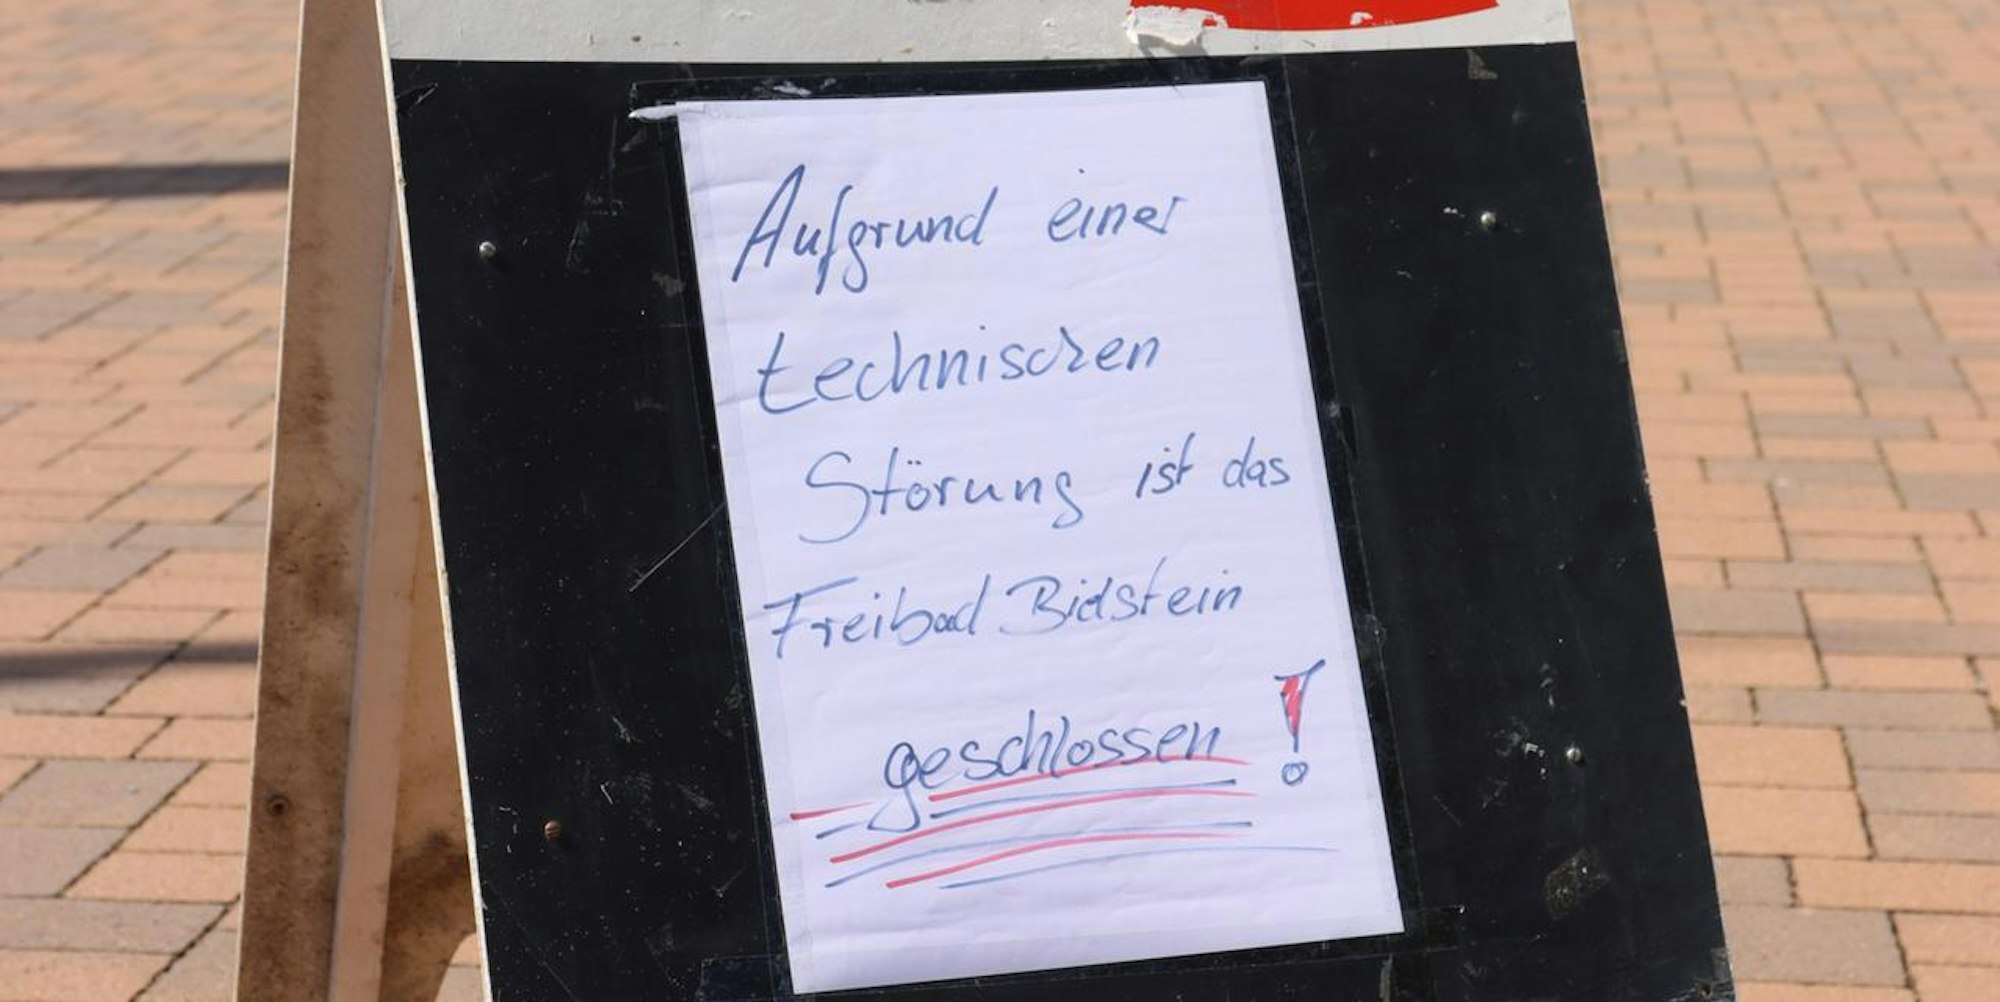 Aufgrund einer
technischen
Störung ist das
Freibad Bielstein
geschlossen!